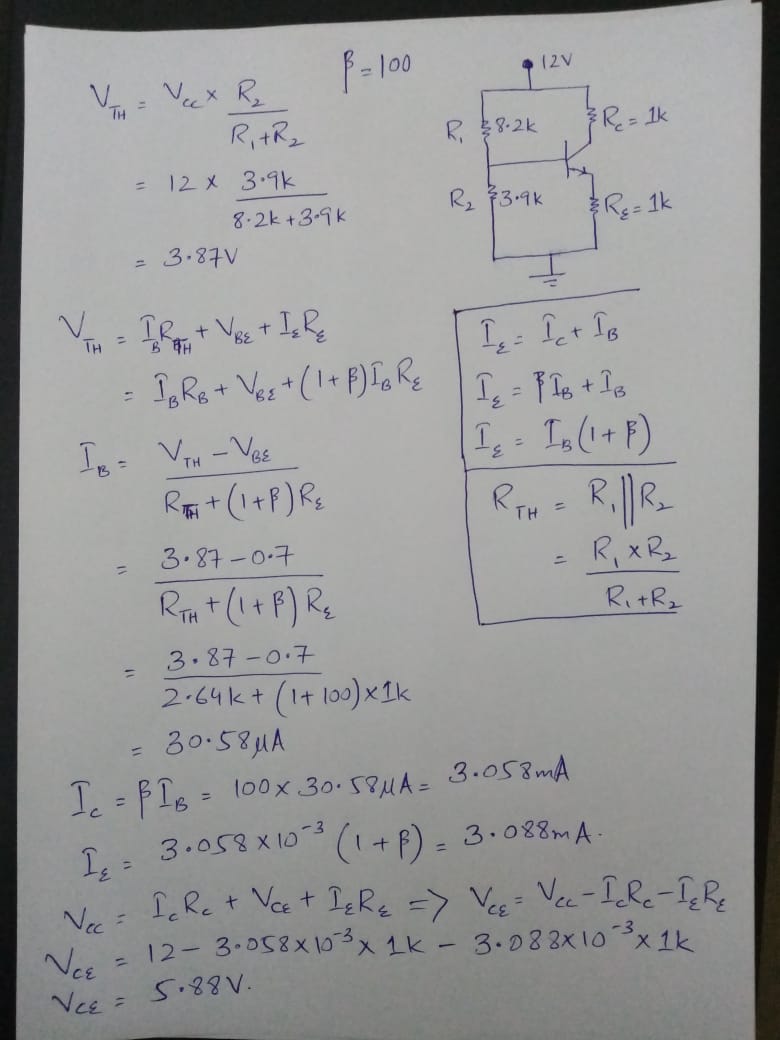 β = 100
V_TH = V_cc × R₂ / (R₁ + R₂)
= 12 × 3.9k / (8.2k + 3.9k)
= 3.87V
12V
R₁ 8.2k
R_C = 1k
R₂ 3.9k
R_E = 1k
V_TH = I_B R_TH + V_BE + I_E R_E
= I_B R_B + V_BE + (1 + β) I_B R_E
I_B = (V_TH − V_BE) / (R_TH + (1 + β) R_E)
= (3.87 − 0.7) / (R_TH + (1 + β) R_E)
= (3.87 − 0.7) / (2.64k + (1 + 100) × 1k)
= 30.58 μA
I_E = I_C + I_B
I_E = β I_B + I_B
I_E = I_B (1 + β)
R_TH = R₁ || R₂
= R₁ × R₂ / (R₁ + R₂)
I_C = β I_B = 100 × 30.58 μA = 3.058 mA
I_E = 3.058 × 10⁻³ (1 + β) = 3.088 mA.
V_CC = I_C R_C + V_CE + I_E R_E => V_CE = V_CC − I_C R_C − I_E R_E
V_CE = 12 − 3.058 × 10⁻³ × 1k − 3.088 × 10⁻³ × 1k
V_CE = 5.88V.